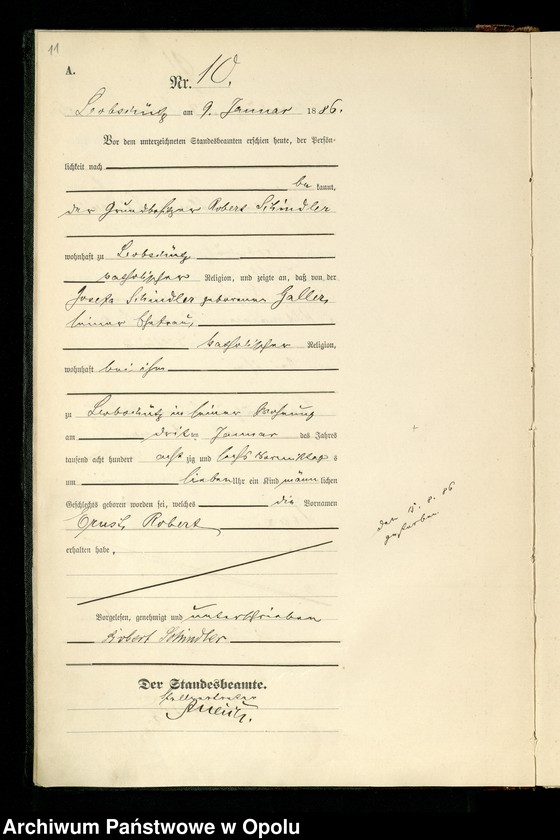 11
A.
Nr. 10.
Leobschütz am 9. Januar 1886.
Vor dem unterzeichneten Standesbeamten erschien heute, der Persön-
lichkeit nach
be kannt,
der Grundbesitzer Robert Schindler
wohnhaft zu Leobschütz
katholischer Religion, und zeigte an, daß von der
Josefa Schindler geborenen Haller,
seiner Ehefrau,
katholischer Religion,
wohnhaft bei ihm
zu Leobschütz in seiner Wohnung
am dritten Januar des Jahres
tausend acht hundert acht zig und sechs Vormittags
um sieben Uhr ein Kind männlichen
Geschlechts geboren worden sei, welches die Vornamen
Ernst Robert
erhalten habe,
Vorgelesen, genehmigt und unterschrieben
Robert Schindler
Der Standesbeamte.
der 15. 8. 86
gestorben.
Archiwum Państwowe w Opolu